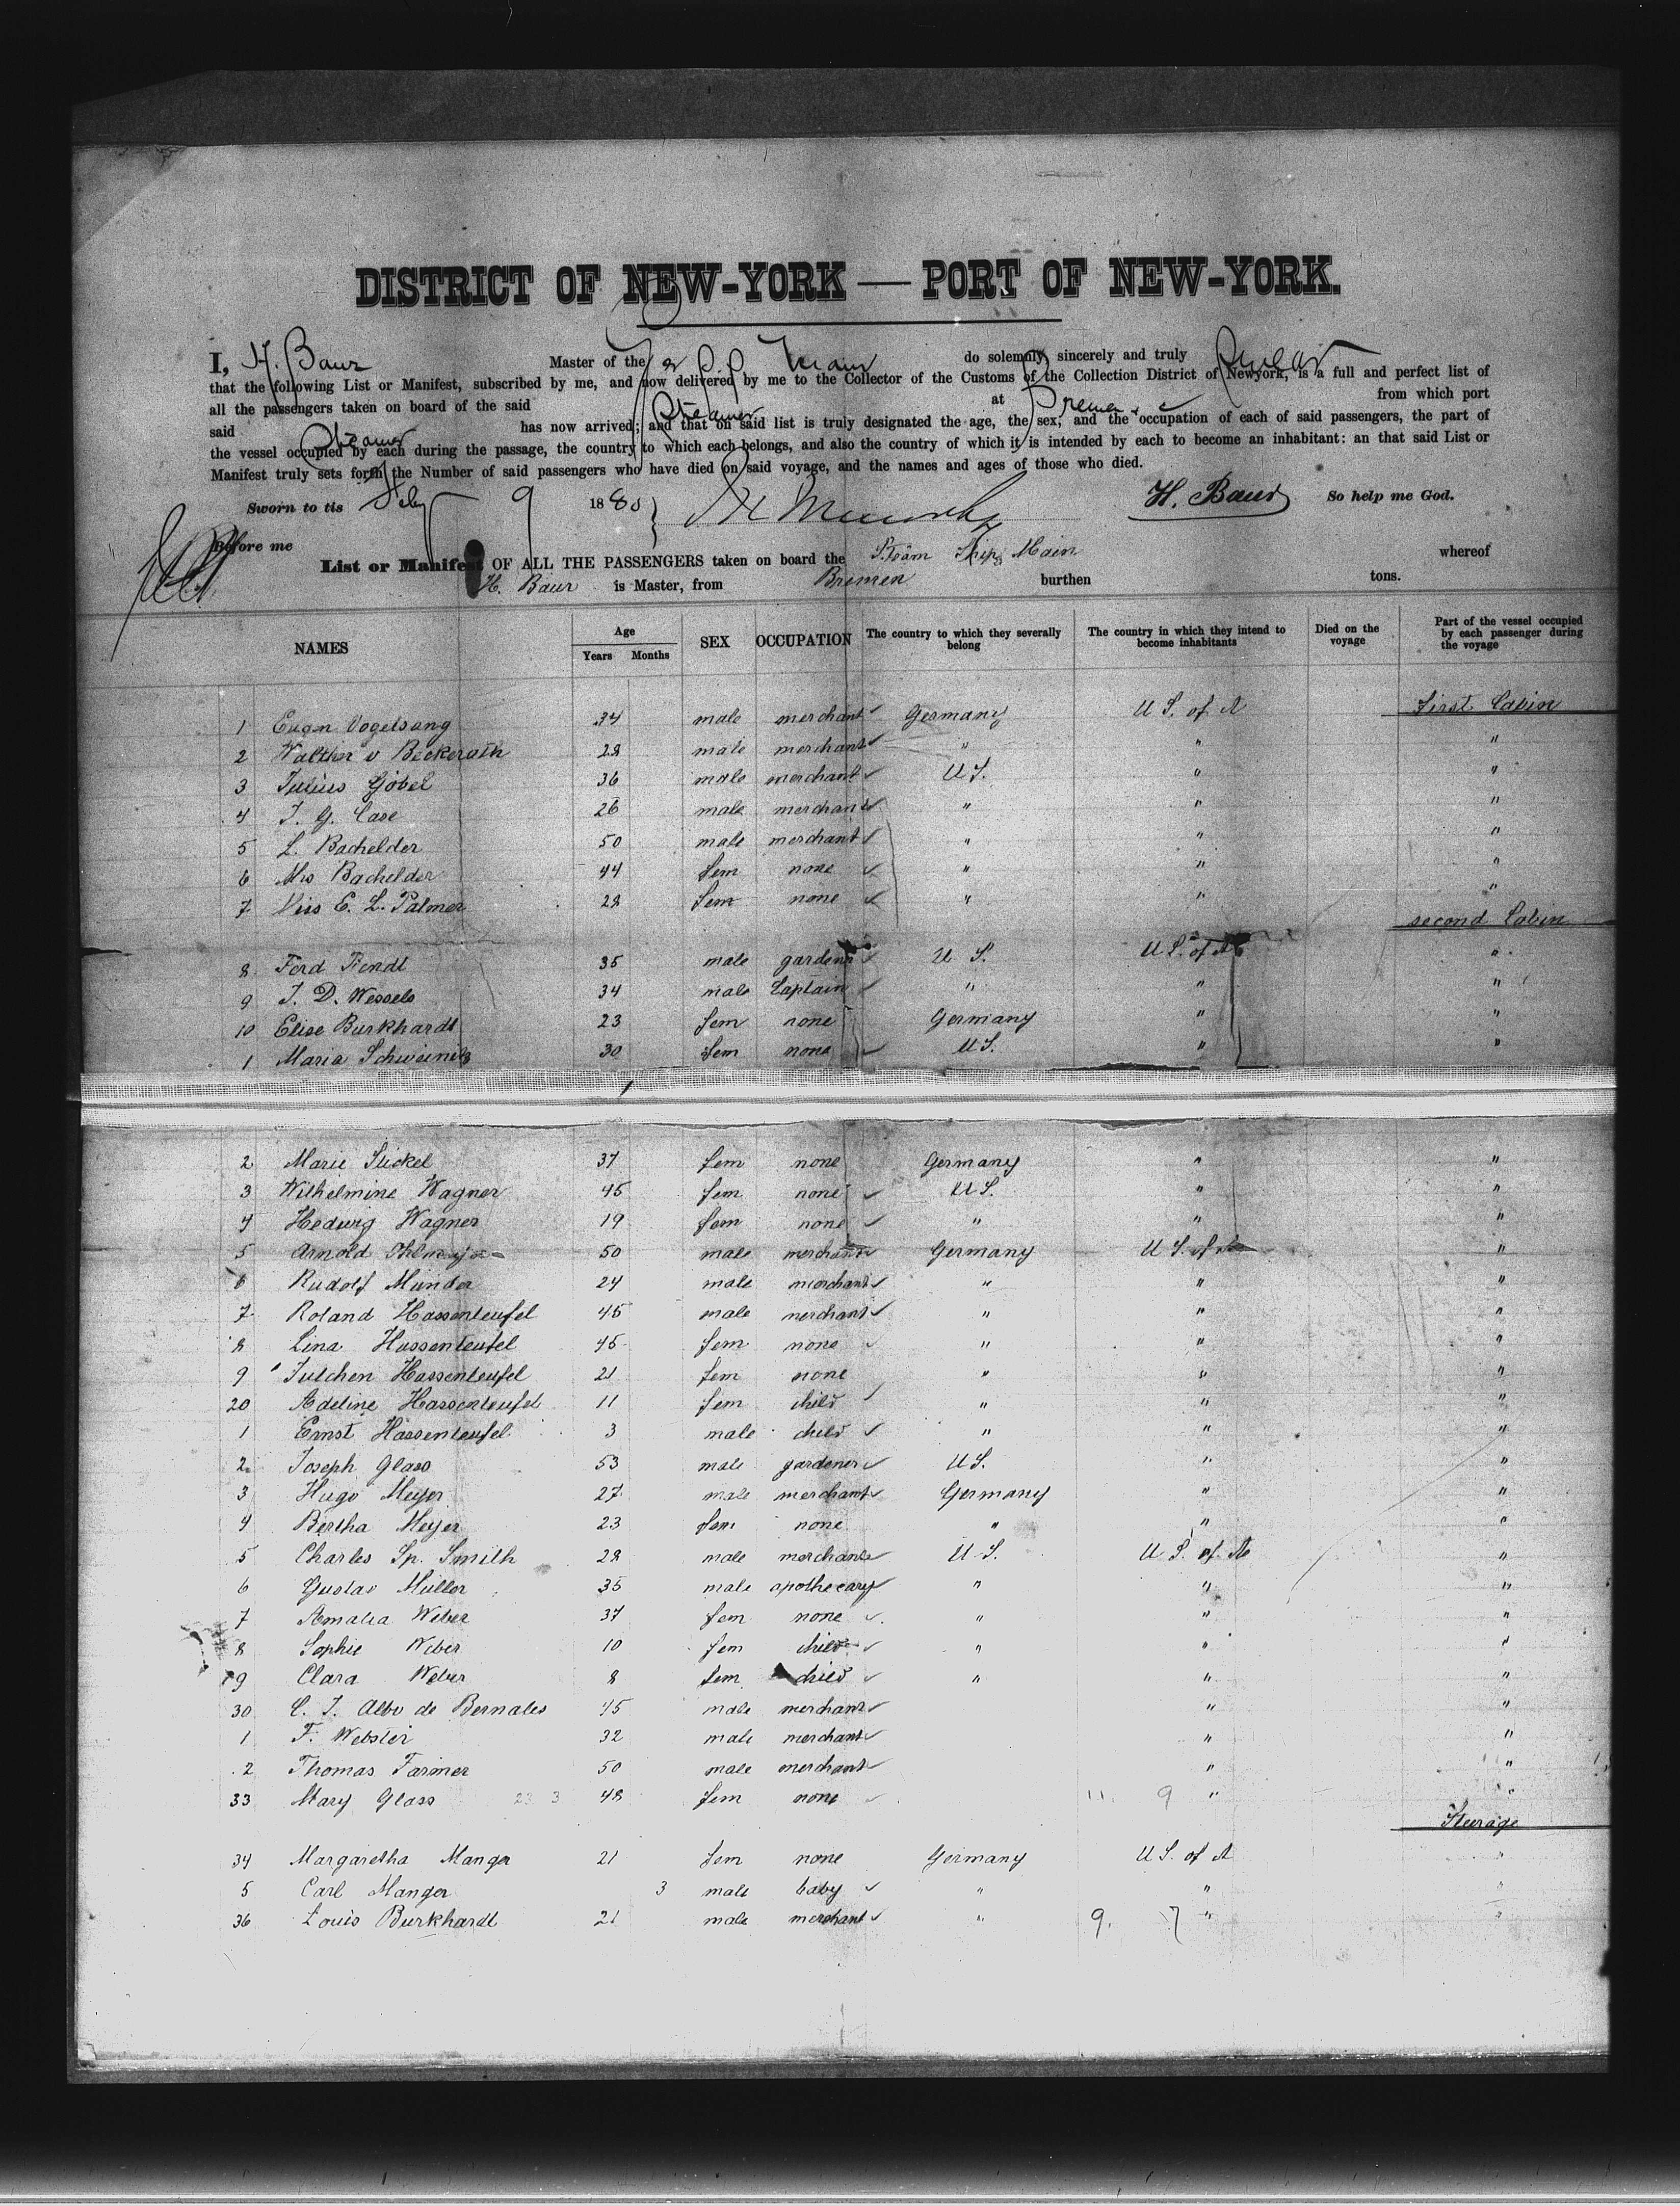 DISTRICT OF NEW-YORK — PORT OF NEW-YORK.
I, H. Baur Master of the do solemnly, sincerely and truly
that the following List or Manifest, subscribed by me, and now delivered by me to the Collector of the Customs of the Collection District of Newyork, is a full and perfect list of
all the passengers taken on board of the said Steamer at Bremen from which port
said Steamer has now arrived; and that on said list is truly designated the age, the sex, and the occupation of each of said passengers, the part of
the vessel occupied by each during the passage, the country to which each belongs, and also the country of which it is intended by each to become an inhabitant: an that said List or
Manifest truly sets forth the Number of said passengers who have died on said voyage, and the names and ages of those who died.
Sworn to tis Feby 9 1880 H. Baur So help me God.
Before me
List or Manifest OF ALL THE PASSENGERS taken on board the Steam Ship Main whereof
H. Baur is Master, from Bremen burthen tons.
NAMES Age Years Months SEX OCCUPATION The country to which they severally belong The country in which they intend to become inhabitants Died on the voyage Part of the vessel occupied by each passenger during the voyage
First Cabin
1 Eugen Vogelsang 34 male merchant Germany U S. of A
2 Walther v Beckerath 28 male merchant " " "
3 Julius Göbel 36 male merchant U S. " "
4 J. G. Case 26 male merchant " " "
5 L. Bachelder 50 male merchant " " "
6 Mrs Bachelder 44 fem none " " "
7 Miss E. L. Palmer 28 fem none " " "
second Cabin
8 Ferd Fendt 35 male gardener U S. U S. of A "
9 J. D. Wessels 34 male Captain " " "
10 Elise Burkhardt 23 fem none Germany " "
1 Maria Schweinitz 30 fem none U S. " "
2 Marie Stickel 37 fem none Germany " "
3 Wilhelmine Wagner 45 fem none U S. " "
4 Hedwig Wagner 19 fem none " " "
5 Arnold 50 male merchant Germany U S. of A "
6 Rudolf Münder 24 male merchant " " "
7 Roland Hassenteufel 45 male merchant " " "
8 Lina Hassenteufel 45 fem none " " "
9 Julchen Hassenteufel 21 fem none " " "
20 Adeline Hassenteufel 11 fem child " " "
1 Ernst Hassenteufel 3 male child " " "
2 Joseph Glass 53 male gardener U S. " "
3 Hugo Meyer 27 male merchant Germany " "
4 Bertha Meyer 23 fem none " " "
5 Charles Sp. Smith 28 male merchant U S. U S. of A "
6 Gustav Müller 35 male apothecary " " "
7 Amalia Weber 37 fem none " " "
8 Sophie Weber 10 fem child " " "
9 Clara Weber 8 fem child " " "
30 C. J. Albo de Bernales 45 male merchant " "
1 F. Webster 32 male merchant " "
2 Thomas Farmer 50 male merchant " "
33 Mary Glass 23 3 48 fem none 11. 9 " "
Steerage
34 Margaretha Manger 21 fem none Germany U S. of A "
5 Carl Manger 3 male baby " " "
36 Louis Burkhardt 21 male merchant " 9. 7 " "